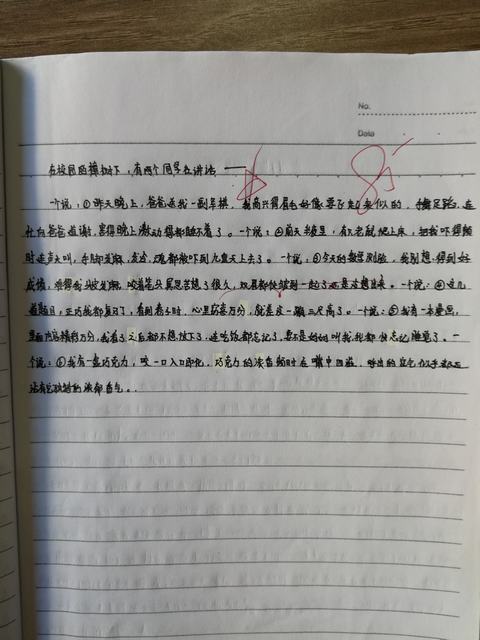 No.
Date
在校园的樟树下，有两个同学在讲话——
一个说：①昨天晚上，爸爸送我一副象棋，我高兴得眉毛好像要飞起来似的，手舞足蹈，连
忙向爸爸道谢，害得晚上激动得都睡不着了。一个说：②前天夜里，有只老鼠爬上床，把我吓得顿
时连声大叫，手脚发麻，魂都被吓到九霄天上去了。一个说：③今天的数学测验，我别想得到好
成绩，难得我头皮发麻，咬着笔头冥思苦想了很久，眉毛都快皱到一起了还是没想出来。一个说：④这几
道题目，正巧我都复习了，看到卷子时，心里欣喜万分，就差没一蹦三尺高了。一个说：⑤我有一本漫画，
里面内容精彩万分，我看了之后都不想放下了，连吃饭都忘记了，要不是妈妈叫我，我都快忘记睡觉了。一
个说：⑥我有一盒巧克力，咬一口入口即化，巧克力的浓香顿时在嘴中回荡，呼出的空气似乎都
还有它独特的浓郁香气。